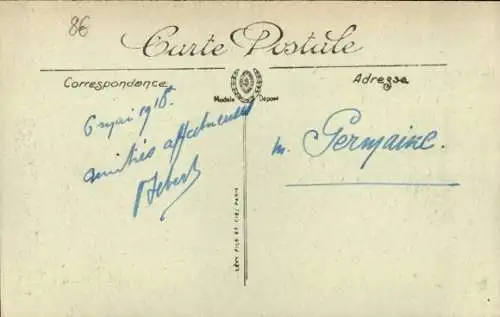 86
Carte Postale
Correspondance
Adresse
Modèle Déposé
6 mai 1918
amitiés affectueuses
m. Germaine.
LÉVY FILS ET CIE, PARIS